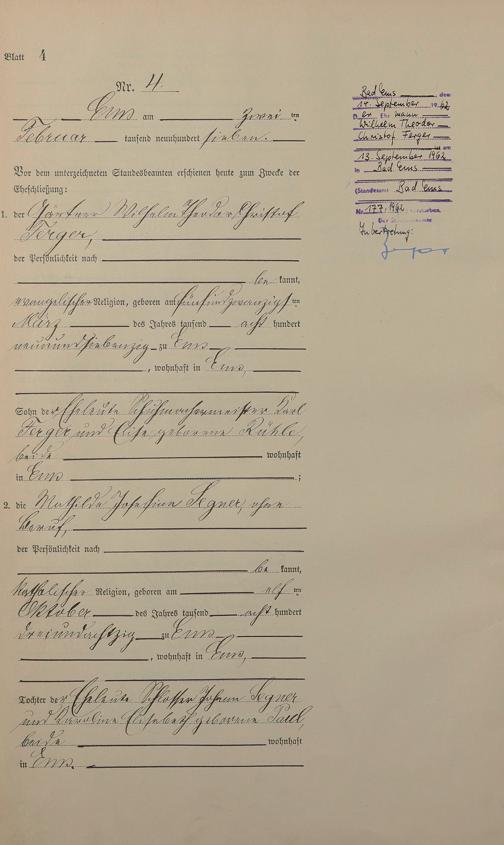 Blatt 4
Nr. 4.
Ems am zwei ten
Februar tausend neunhundert sieben.
Vor dem unterzeichneten Standesbeamten erschienen heute zum Zwecke der
Eheschließung:
1. der Gärtner Wilhelm Theodor Christof
Ferger,
der Persönlichkeit nach
be kannt,
evangelischer Religion, geboren am fünfundzwanzigsten
März des Jahres tausend acht hundert
neunundsiebenzig zu Ems
, wohnhaft in Ems,
Sohn der Eheleute Schuhmachermeister Karl
Ferger und Elise geborene Rühle,
beide wohnhaft
in Ems ;
2. die Mathilde Josefina Segner, ohne
Beruf,
der Persönlichkeit nach
be kannt,
katholischer Religion, geboren am elf ten
Oktober des Jahres tausend acht hundert
dreiundachtzig zu Ems
, wohnhaft in Ems,
Tochter der Eheleute Schlosser Johann Segner
und Karoline Elisabeth geborene Paul,
beide wohnhaft
in Ems.
Bad Ems, den
14. September 1962
Der Ehemann
Wilhelm Theodor
Christof Ferger
ist am
13. September 1962
in Bad Ems
(Standesamt Bad Ems
Nr. 177/1962 verstorben.
Der Standesbeamte
In Vertretung: